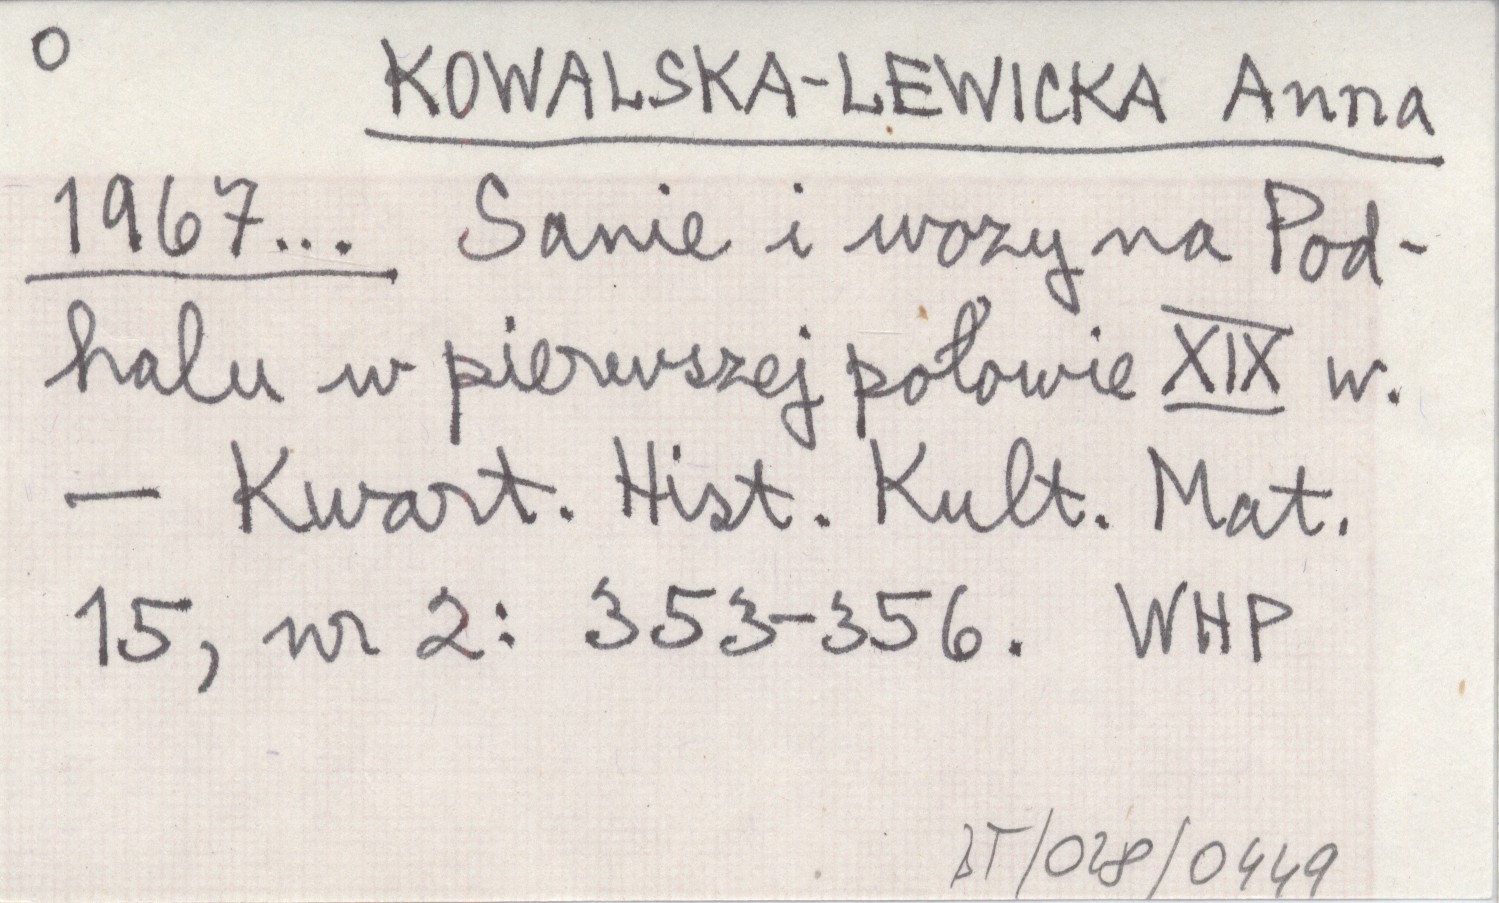 O
KOWALSKA-LEWICKA Anna
1967... Sanie i wozy na Pod-
halu w pierwszej połowie XIX w.
— Kwart. Hist. Kult. Mat.
15, nr 2: 353-356. WHP
/028/0449